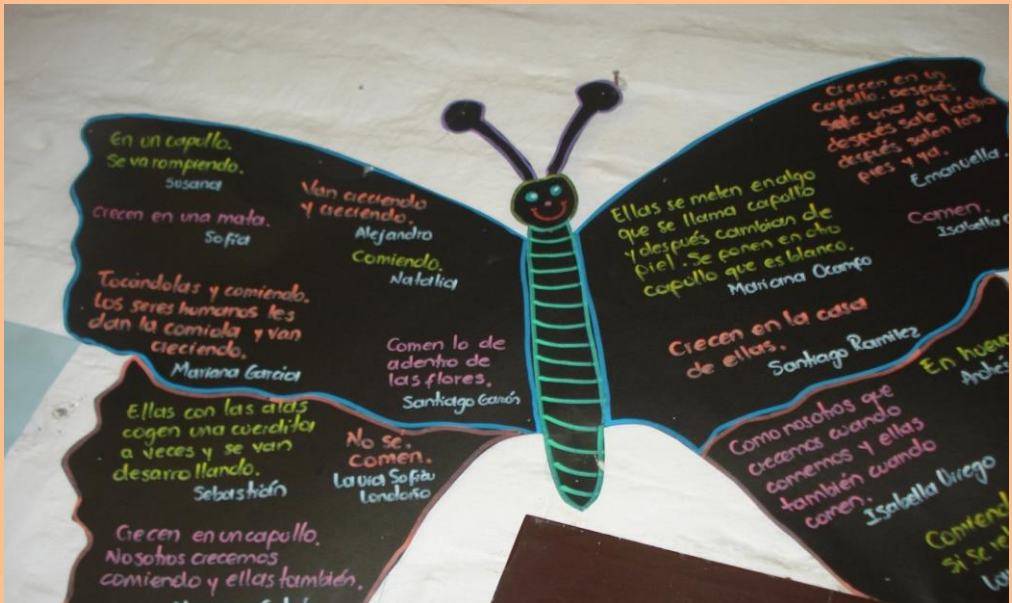 En un capullo.
Se va rompiendo.
Susana
Crecen en una mata.
Sofía
Tocándolas y comiendo.
Los seres humanos les
dan la comida y van
creciendo.
Mariana Garcia
Van creciendo
y creciendo.
Alejandro
Comiendo.
Natalia
Comen lo de
adentro de
las flores.
Santiago
Ellas con las alas
cogen una cuerdita
a veces y se van
desarrollando.
Sebastián
No se.
Comen.
Laura Sofía
Londoño
Crecen en un capullo.
Nosotros crecemos
comiendo y ellas también.
Ellas se meten en algo
que se llama capullo
y después cambian de
piel. Se ponen en otro
capullo que es blanco.
Mariana Ocampo
Crecen en un
capullo. Después
sale una ala,
después sale
después salen los
pies y ya.
Emanuella.
Comen.
Isabella
Crecen en la casa
de ellas.
Santiago Ramirez
Como nosotros que
crecemos cuando
comemos y ellas
también cuando
comen.
Isabella Orrego
En
si se